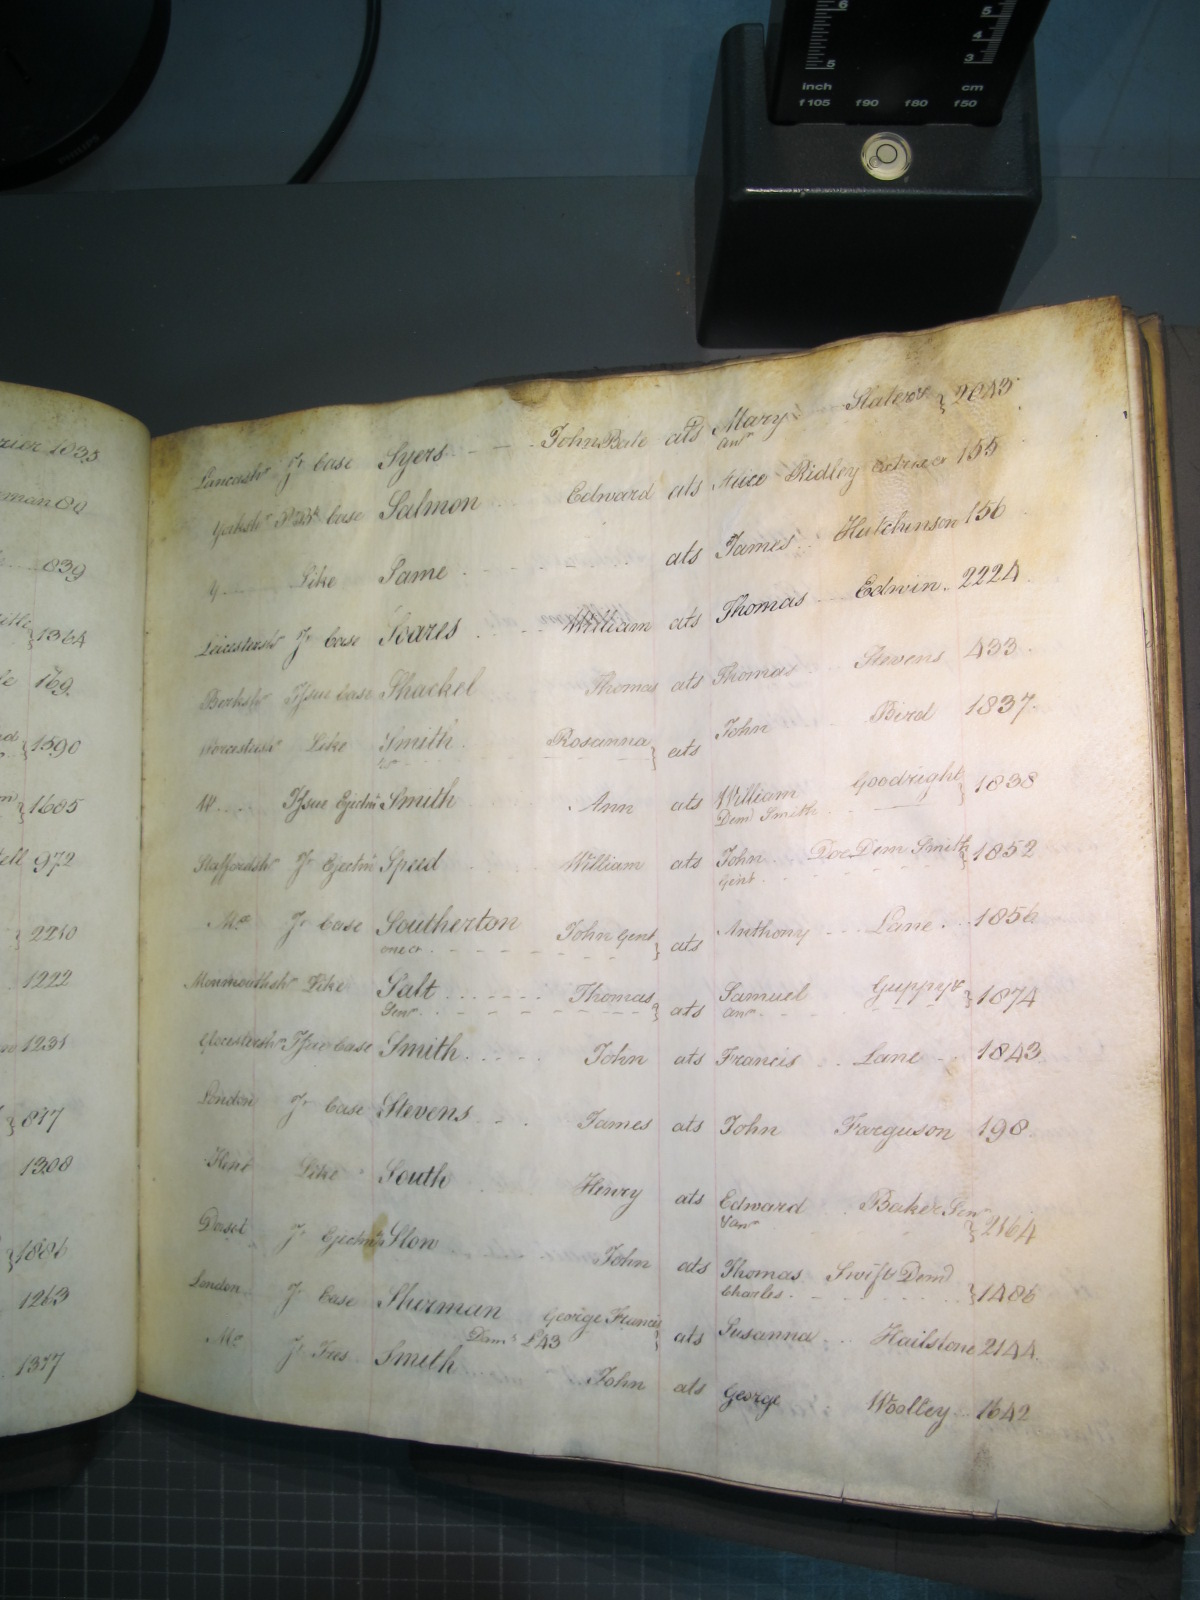 6 5
5 4 3
inch cm
f105 f90 f80 f50
PHILIPS
1035
839
1364
169
1590
1685
972
2210
1222
1231
817
1308
1881
1263
1377
Lancashr Jt Case Syers John Bate ats Mary Slater & 2043
anr
Yorksh Case Salmon Edward ats Alice Ridley 155
Y Like Same ats James Hutchinson 156
Leicestersh Jt Case Soares William ats Thomas Edwin 2224
Berksh Issue Case Shackel Thomas ats Thomas Stevens 433
Worcestersh Like Smith Rosanna ats John Bird 1837
W Issue Ejectm Smith Ann ats William Goodright 1838
Dem Smith
Staffordsh Jt Ejectm Speed William ats John Doe Dem Smith 1852
Gent
Mx Jt Case Southerton John Gent ats Anthony Lane 1856
one &c
Monmouthsh Like Salt Thomas ats Samuel Guppy & 1874
Senr anr
Glocestersh Issue Case Smith John ats Francis Lane 1843
London Jt Case Stevens James ats John Farguson 198
Kent Like South Henry ats Edward Baker Senr 2164
Dorset Jt Ejectm Slon John ats Thomas Swift Dem 1486
Charles
London Jt Case Sherman George Francis ats Susanna Hailstone 2144
Mx Jt Tres Smith Dams £43 John ats George Woolley 1642